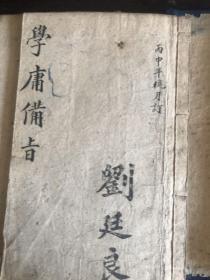 丙申年桃月訂
學庸備旨
劉廷良